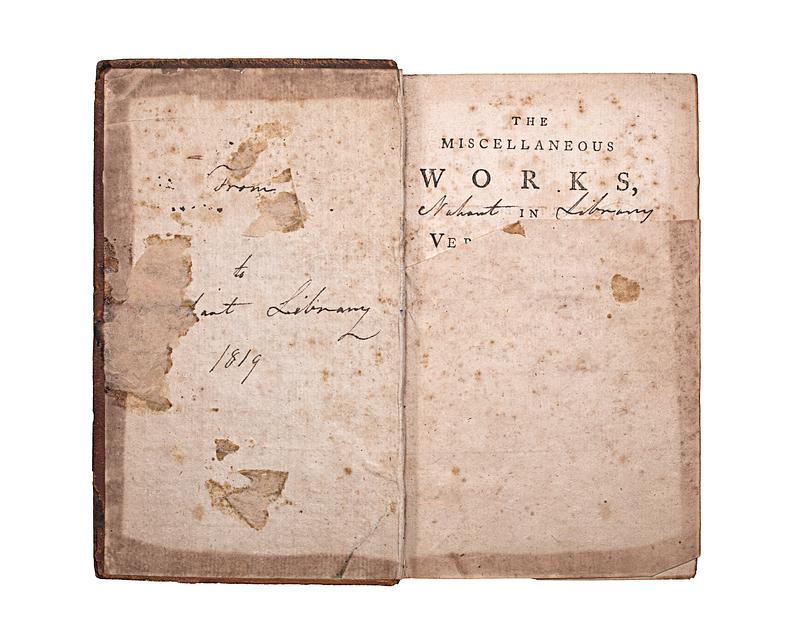 From
to
hant Library
1819
THE
MISCELLANEOUS
WORKS,
Nahant IN Library
VER